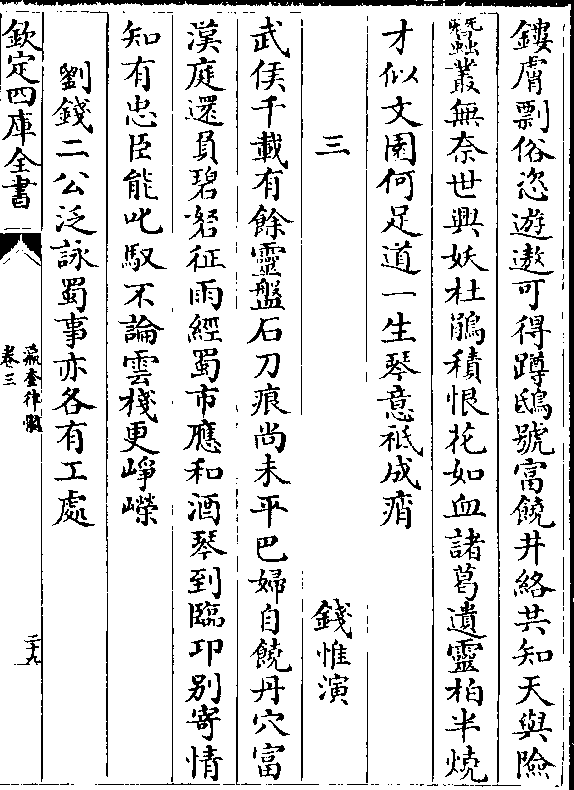 鏤膚剽俗恣遊遨可得蹲鴟號富饒井絡共知天與險
蠶叢無奈世興妖杜鵑積恨花如血諸葛遺靈柏半燒
才似文園何足道一生琴意祗成痟
三
錢惟演
武侯千載有餘靈盤石刀痕尚未平巴婦自饒丹穴富
漢庭還負碧砮征雨經蜀市應和酒琴到臨卭别寄情
知有忠臣能叱馭不論雲棧更崢嶸
劉錢二公泛詠蜀事亦各有工處
欽定四庫全書
瀛奎律髓
卷三
二十九